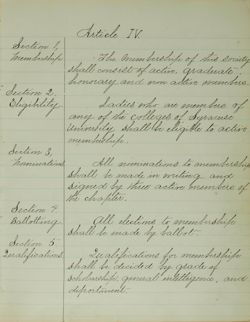 Article IV.
Section 1,
Membership
The Membership of this society
shall consist of active, graduate,
honorary and non active members.
Section 2,
Eligibility
Ladies who are member of
any of the colleges of Syracuse
University shall be eligible to active
membership.
Section 3,
Nominations
All nominations to membership
shall be made in writing and
signed by three active members of
the chapter.
Section 4
Balloting
All elections to membership
shall be made by ballot.
Section 5
Qualifications
Qualifications for membership
shall be decided by grade of
scholarship, general intelligence, and
deportment.